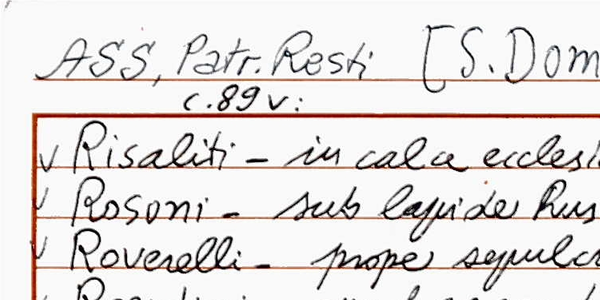 ASS, Patr. Resti [S. Dom
c. 89 v:
v Risaliti - in calce eccles
v Rosoni - sub lapide Rus
v Roverelli - prope sepulcr